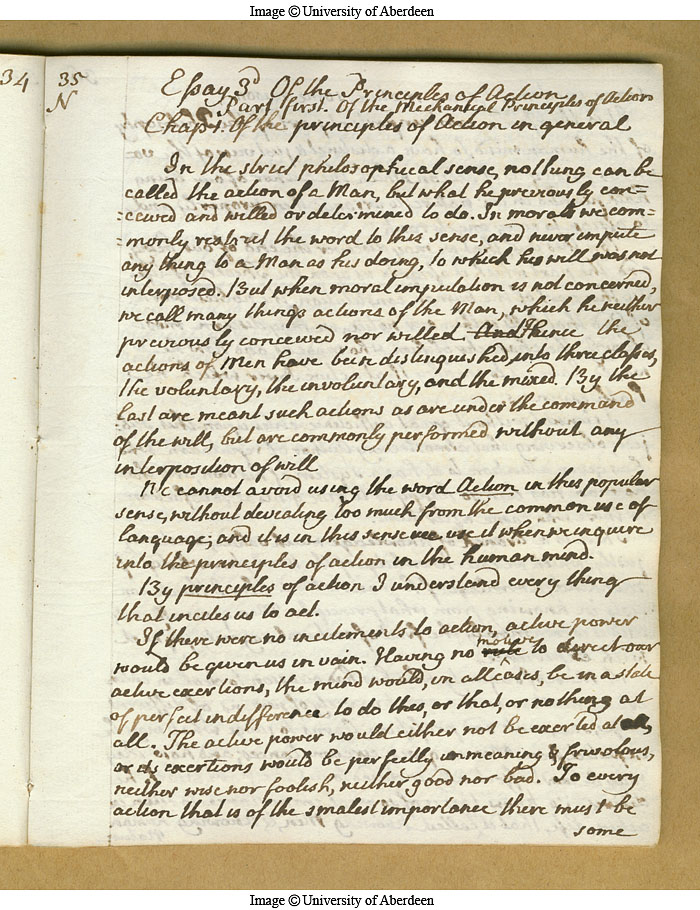 Image © University of Aberdeen
34
35
N
Essay 3d Of the Principles of Action
Part first. Of the Mechanical Principles of Action
Chap 1. Of the principles of Action in general
In the strict philosophical sense, nothing can be
called the action of a Man, but what he previously con=
=ceived and willed or determined to do. In morals we com=
=monly restrict the word to this sense, and never impute
any thing to a Man as his doing, to which his will was not
interposed. But when moral imputation is not concerned,
we call many things actions of the Man, which he neither
previously conceived nor willed. And hence the
actions of Men have been distinguished into three classes,
the voluntary, the involuntary, and the mixed. By the
last are meant such actions as are under the command
of the will, but are commonly performed without any
interposition of will
We cannot avoid using the word Action in this popular
sense, without deviating too much from the common use of
language; and it is in this sense we use it when we inquire
into the principles of action in the human mind.
By principles of action I understand every thing
that incites us to act.
If there were no incitements to action, active power
would be given us in vain. Having no motive to direct our
active exertions, the mind would, in all cases, be in a state
of perfect indifference to do this, or that, or nothing at
all. The active power would either not be exerted at all,
or its exertions would be perfectly unmeaning & frivolous,
neither wise nor foolish, neither good nor bad. To every
action that is of the smalest importance there must be
some
Image © University of Aberdeen